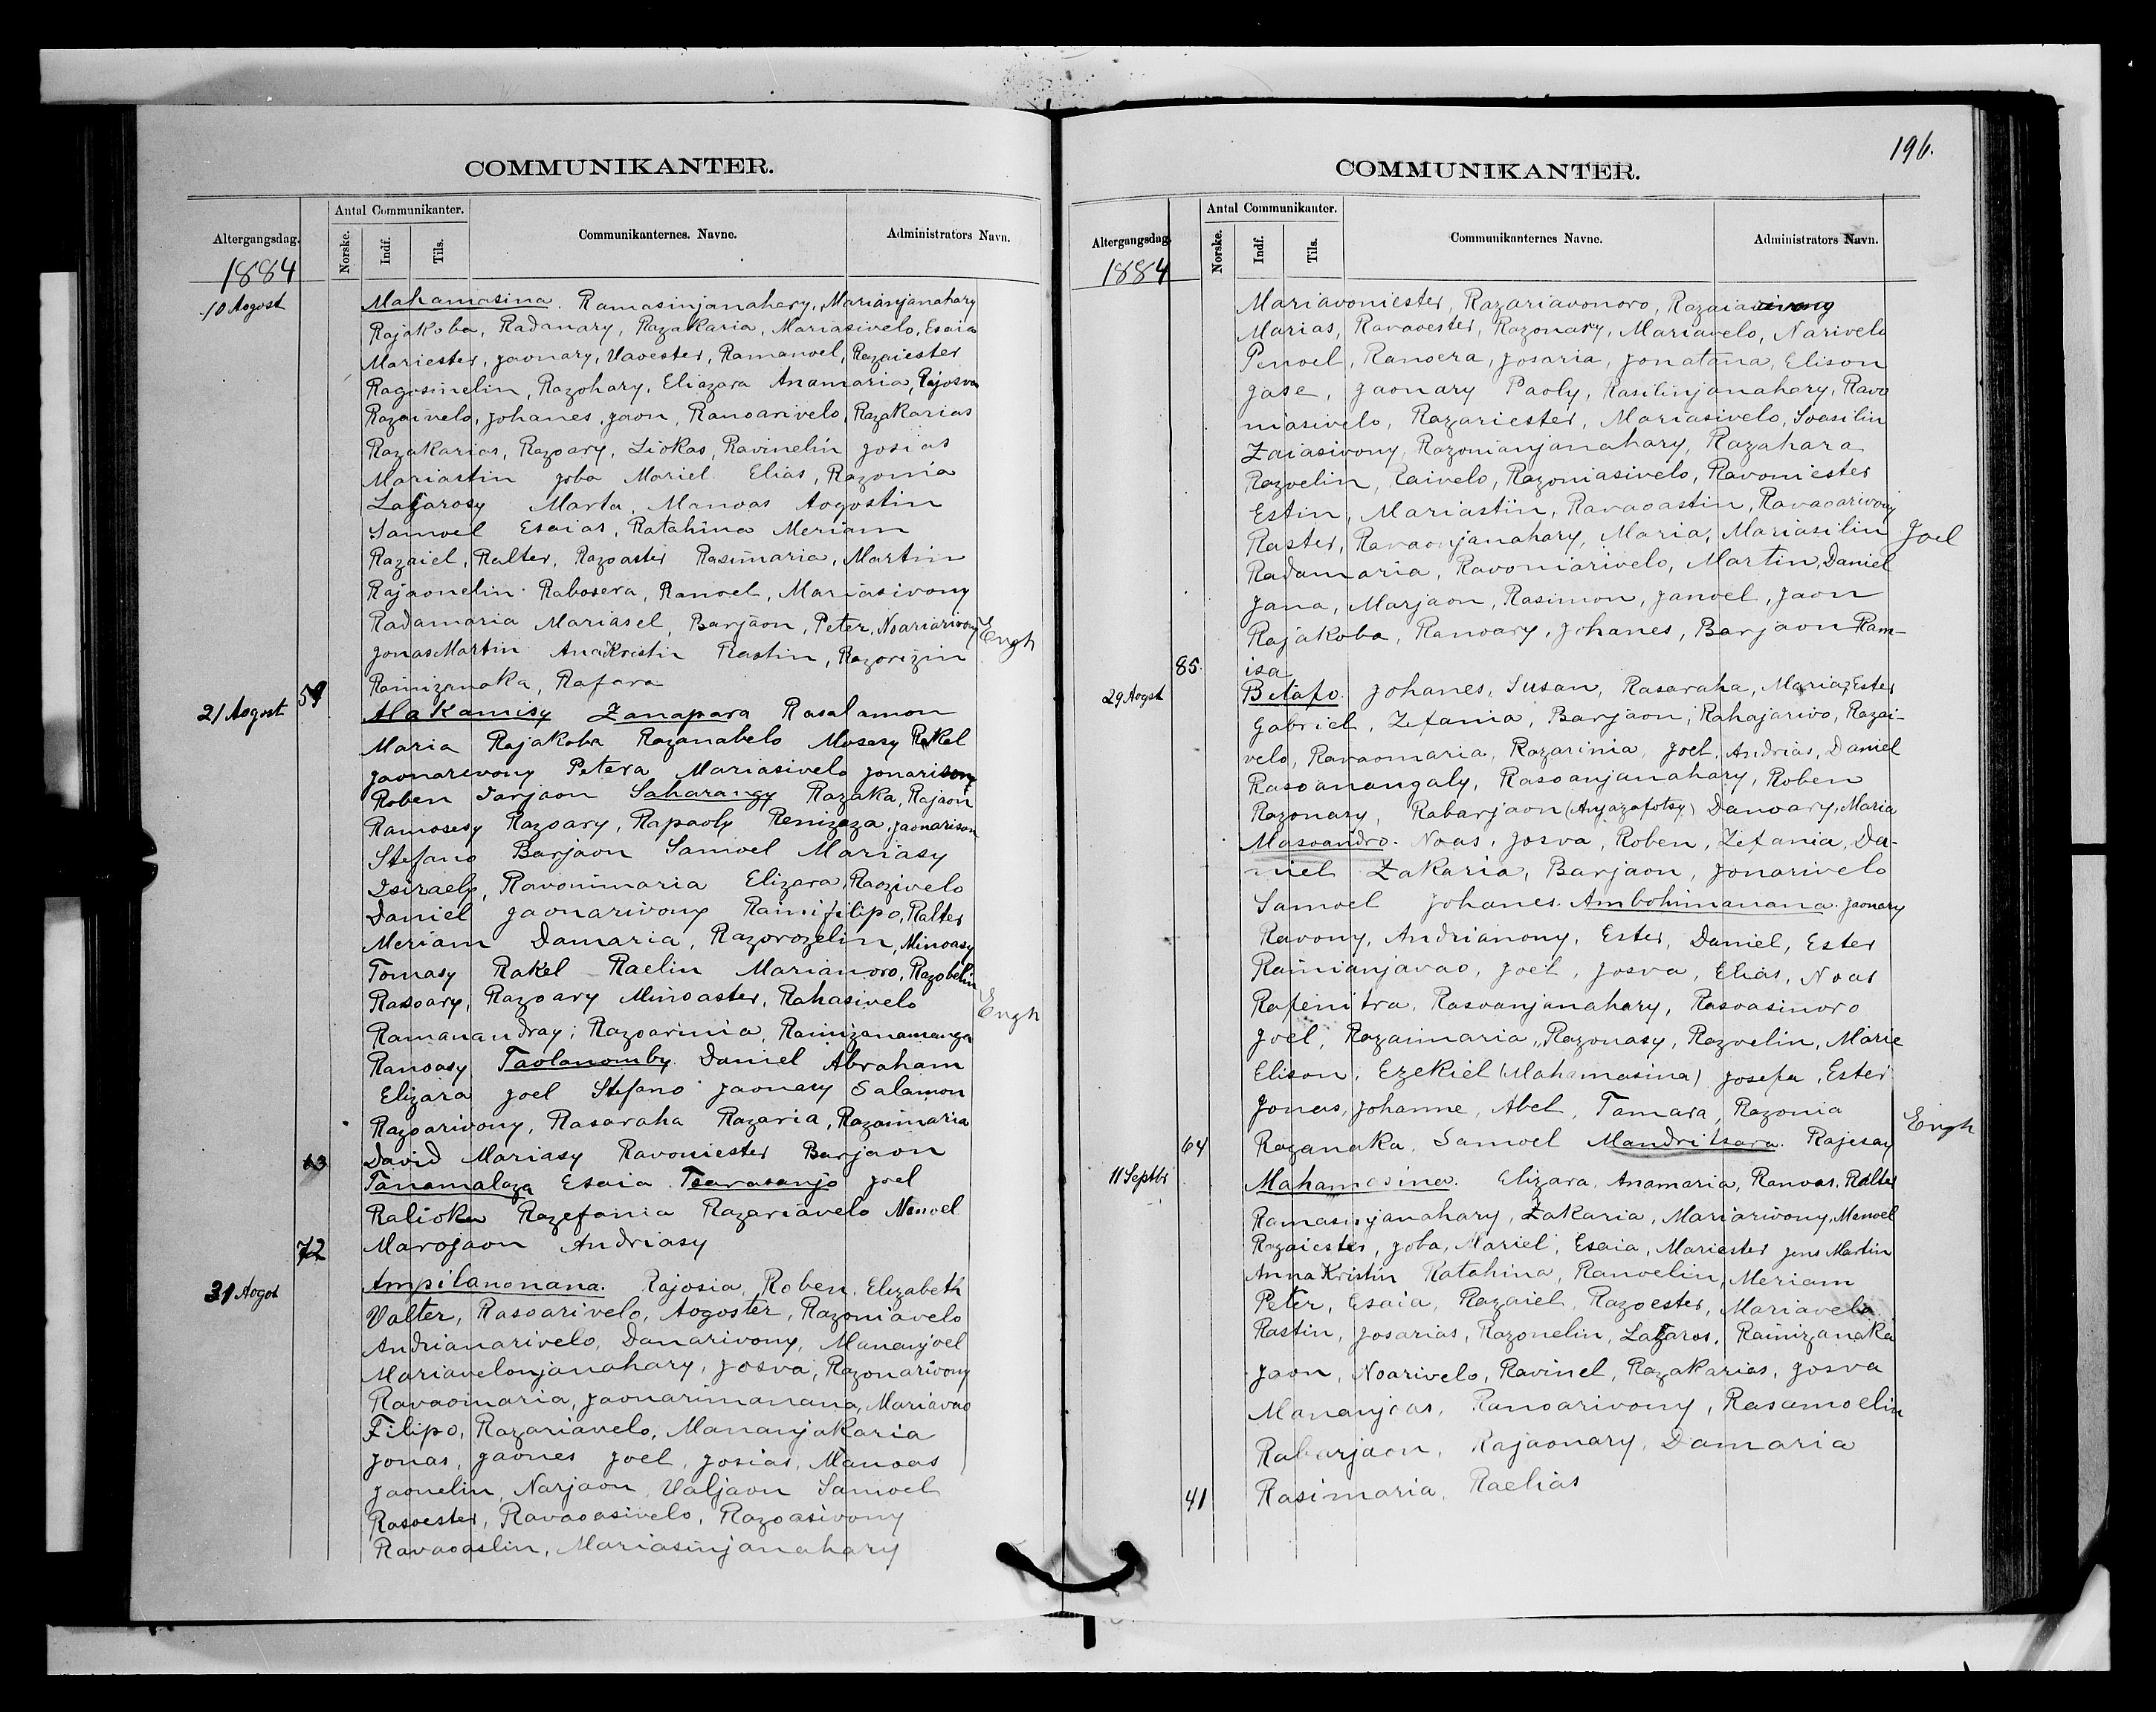 196.
COMMUNIKANTER.
Altergangsdag.
Antal Communikanter.
Norske.
Indf.
Tils.
Communikanternes. Navne.
Administrators Navn.
1884
10 Aogost
Mahamasina. Ramasinjanahary, Marianjanahary
Rajakoba, Radanary, Razakaria, Mariasivelo, Esaia
Mariester, Jaonary, Vavester, Ramanoel, Razaiester
Ragosinelin, Razohary, Eliazara Anamaria, Rajosva
Razaivelo, Johanes, Jaon, Ranoarivelo, Razakarias
Razakarias, Razoary, Liokas, Ravinelin Josias
Mariastin Joba Mariel Elias, Razonia
Lazarosy Marta, Manoas Aogostin
Samoel Esaias, Ratahina Meriam
Razaiel, Ralter, Razoaster Rasimaria, Martin
Rajaonelin Rabosera, Ranoel, Mariasivony
Radamaria Mariasel, Barjaon, Peter, Noariarivony
Engh
Jonas Martin Ana Kristin Rastin, Razorizin
Rainizanaka, Rafara
59
21 Aogost
Alakamisy Zanapara Rasalamon
Maria Rajakoba Razanabelo Mosesy Rakel
Jaonarivony Petera Mariasivelo Jonarisony
Roben Iarjaon Saharangy Razaka, Rajaon
Ramosesy Razoary, Rapaoly Renizaza, Jaonarison
Stefano Barjaon Samoel Mariasy
Isiraely, Ravonimaria Elizara, Raozivelo
Daniel Jaonarivony Rainifilipo, Ralter
Meriam Damaria, Razorozelin, Minoasy
Tomasy Rakel Raelin Marianoro, Razobelin
Rasoary, Razoary Minoaster, Rahasivelo
Engh
Ramanandray, Razoarinia, Rainizanamanga
Ranoasy Taolanomby Daniel Abraham
Elizara Joel Stefano Jaonary Salamon
Razoarivony, Rasaraha Razaria, Razaimaria
David Mariasy Ravoniester Barjaon
Tanamalaza Esaia Tsarasanjo Joel
Ralioka Razefania Razariavelo Manoel
72 Marojaon Andriasy
31 Aogost
Ampilanonana. Rajosia, Roben, Elizabeth
Valter, Rasoarivelo, Aogoster, Razoniavelo
Andrianarivelo, Danarivony, Mananjoel
Mariavelonjanahary, Josva, Razonarivony
Ravaomaria, Jaonarimanana, Mariavao
Filipo, Razariavelo, Mananjakaria
Jonas, Jaones Joel, Josias, Manoas
Jaonelin, Narjaon, Valjaon Samoel
Rasoester, Ravaoasivelo, Razoasivony
Ravaoaslin, Mariasinjanahary
COMMUNIKANTER.
Altergangsdag.
Antal Communikanter.
Norske.
Indf.
Tils.
Communikanternes Navne.
Administrators Navn.
1884
Mariavoniester, Razariavonoro,
Marias, Ravaoester, Razonary, Mariavelo, Narivelo
Penoel, Ranoera, Josaria, Jonatana, Elison
Jase, Jaonary Paoly, Rasilinjanahary, Ravo
miasivelo, Razariester, Mariasivelo, Soasilin
Zaiasivony, Razonianjanahary, Razahara
Razoelin, Raivelo, Razoniasivelo, Ravoniester
Estin, Mariastin, Ravaoastin, Ravaoarivony
Raster, Ravaonjanahary, Maria, Mariasilin
Joel
Radamaria, Ravoniarivelo, Martin, Daniel
Jana, Marjaon, Rasimon, Janoel, Jaon
Rajakoba, Ranoary, Johanes, Barjaon Ram-
85. isa
29 Aogst
Betafo. Johanes, Susan, Rasaraha, Maria, Ester
Gabriel, Zefania, Barjaon, Rahajarivo, Razai-
velo, Ravaomaria, Razarinia, Joel, Andrias, Daniel
Rasoanangaly, Rasoanjanahary, Roben
Razonary, Rabarjaon (Anjazafotsy) Danoary, Maria
Masoandro. Noas, Josva, Roben, Zefania, Da-
niel Zakaria, Barjaon, Jonarivelo
Samoel Johanes. Ambohimanana. Jaonary
Ravony, Andrianony, Ester, Daniel, Ester
Rainianjavao, Joel, Josva, Elias, Noas
Rafenitra, Rasoanjanahary, Rasoasinoro
Joel, Razaimaria, Razonasy, Razoelin, Marie
Elison, Ezekiel (Mahamasina) Josefa, Ester
Jonas, Johanne, Abel, Tamara, Razonia
Engh
64 Razanaka, Samoel Mandritsara. Rajesay
11 Septbr
Mahamasina. Elizara, Anamaria, Ranoas, Ralter
Ramasinjanahary, Zakaria, Mariarivony, Manoel
Razaiester, Joba, Mariel, Esaia, Mariester Jens Martin
Anna Kristin Ratahina, Ranoelin, Meriam
Peter, Esaia, Razaiel, Razoester, Mariavelo
Rastin, Josarias, Razonelin, Lazaros, Rainizanaka
Jaon, Noarivelo, Ravinel, Razakarias, Josva
Mananjoas, Ranoarivony, Rasamoelin
Rabarjaon, Rajaonary, Damaria
41 Rasimaria, Raelias